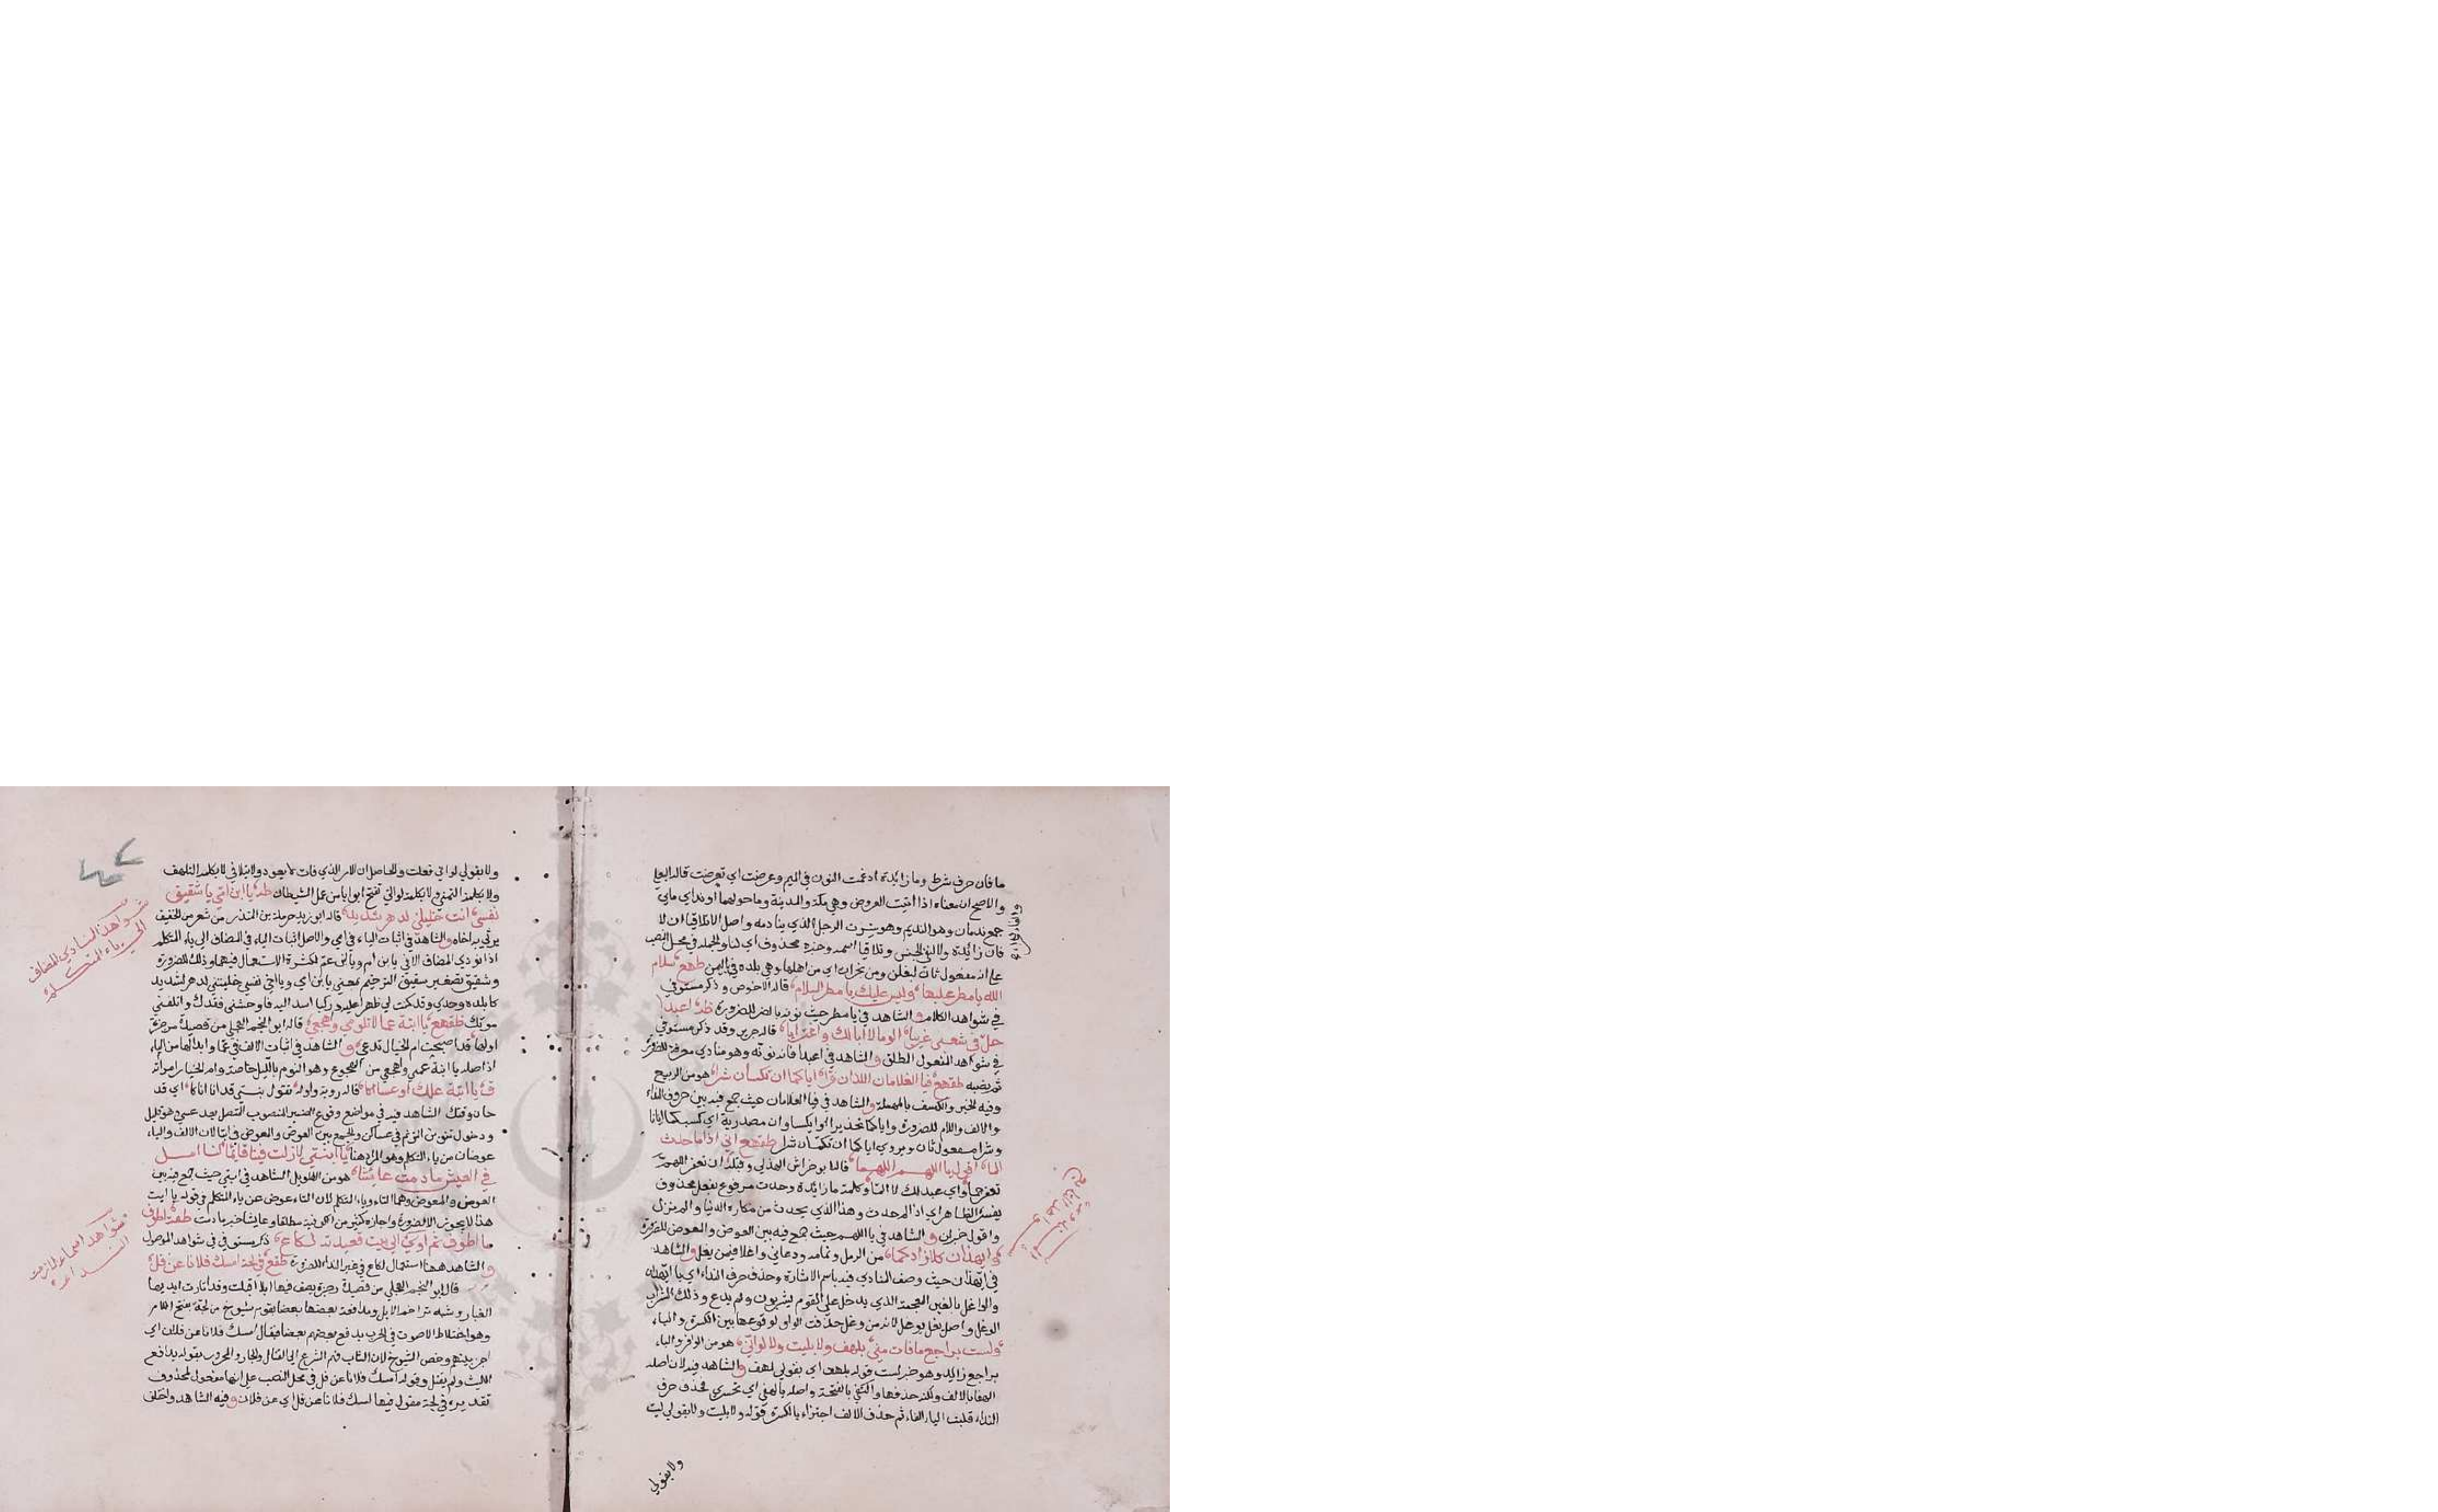 ما فان حرف شرط وما زائدة ادغمت النون في الميم وعرضت اي تعرضت قاله البعلي
والاصح ان معناه اذا اتيت العروض وهي مكة والمدينة وما حولهما او نداماي
جمع ندمان وهو النديم وهو شرب الرجل الذي ينادمه واصل الا تلاقيا ان لا
فان زائدة ولا لنفي الجنس وتلاقيا اسمه وخبره محذوف اي لنا والجملة في محل النصب
على انه مفعول ثان لبلغن ومن نجران اي من اهلها وهي بلدة في اليمن طقهع سلام
الله يا مطر عليها وليس عليك يا مطر السلام قاله الاحوص وذكر مستوفي
في شواهد الكلام والشاهد في يا مطر حيث نونه بالضم للضرورة ظه اعبدا
حل في شعبى غريبا الوما لا ابالك واغترابا قاله جرير وقد ذكر مستوفي
في شواهد المفعول المطلق والشاهد في اعبدا فانه نونه وهو منادي معرفة للضرورة
ثم نصبه طقهع فيا الغلامان اللذان فرا اياكما ان تكسبان شرا هو من الرجز
وفيه الخبن والكسف بالمهملة والشاهد في فيا الغلامان حيث جمع فيه بين حرف النداء
والالف واللام للضرورة واياكما تحذير ان مصدرية اي كسبكما ايانا
وشرا مفعول ثان ويروي اياكما ان تكتمان شرا طقهع اني اذا ما حدث
الما اقول يا اللهم اللهما قاله ابو خراش الهذلي وقبله ان تغفر اللهم
تغفر جما واي عبد لك لا الما وكلمة ما زائدة وحدث مرفوع بفعل محذوف
يفسره الظاهر اي اذا الم حدث وهذا الذي يحدث من مكاره الدنيا
واقول خبر ان والشاهد في يا اللهم حيث جمع فيه بين العوض والمعوض للضرورة
ايهذان كلا زادكما من الرمل وتمامه ودعاني واغلا فيمن يغل والشاهد
في ايهذان حيث وصف المنادي فيه باسم الاشارة وحذف حرف النداء اي يا ايهذان
والواغل بالغين المعجمة الذي يدخل على القوم يشربون ولم يدع وذلك الشراب
الوغل واصل يغل يوغل لانه من وغل حذفت الواو لوقوعها بين الكسرة والياء
ولست براجع ما فات مني بلهف ولا بليت ولا لو اني هو من الوافر والباء
براجع زائدة وهو خبر لست قوله بلهف اي بقولي لهف والشاهد فيه لان اصله
الهفا بالالف ولكنه حذفها واكتفي بالفتحة واصله يا لهفي اي تحسري فحذف حرف
النداء قلبت الياء الفا ثم حذف الالف اجتزاء بالكسرة قوله ولا بليت ولا بقولي ليت
ولا بقولي
ولا بقولي لو اني فعلت والحاصل ان الامر الذي فات لا يعود ولا يتلافي لا بكلمة التلهف
ولا بكلمة التمني ولا بكلمة لو التي تفتح ابوابا من عمل الشيطان ظه يا ابن امي يا شقيق
نفسي انت خليتني لدهر شديد قاله ابو زبيد حرملة بن المنذر من شعر من الخفيف
يرثي به اخاه والشاهد في اثبات الياء في امي والاصل اثبات الياء في المضاف الي ياء المتكلم
اذا نودي المضاف الا في يا ابن ام ويا ابن عم لكثرة الاستعمال فيهما وذلك للضرورة
وشقيق تصغير شقيق الترخيم بمعني يا ابن امي ويا اخي نفسي خليتني لدهر شديد
كابده وحدي وقد كنت لي ظهرا عليه اسند اليه فاوحشني فقدك واتلفني
موتك طقهع يا ابنة عما لا تلومي واهجعي قاله ابو النجم العجلي من قصيدة مرجزة
اولها قد اصبحت ام الخيار تدعي والشاهد في اثبات الالف في عما وابدالها من الياء
اذ اصله يا ابنة عمي واهجعي من الهجوع وهو النوم بالليل خاصة وام الخيار امراته
ق يا ابتا علك او عساكا قاله روبة واوله تقول بنتي قد انا اناكا اي قد
حان وقتك الشاهد فيه في مواضع وقوع الضمير المنصوب المتصل بعد عسي وهو قليل
ودخول تنوين الترنم في عساكن والجمع بين العوض والمعوض في ابتا لان الالف والياء
عوضان من ياء المتكلم وهو المراد هنا يا ابتي لا زلت فينا فانما لنا امل
في العيش ما دمت عائشا هو من الطويل الشاهد في ابتي حيث جمع فيه بين
العوض والمعوض وهما التاء وياء المتكلم لان التاء عوض عن ياء المتكلم في قوله يا ابت
هذا لا يجوز الا لضرورة واجازه كثير من الكوفية مطلقا وعايشا خبر ما دمت طقه اطوف
ما اطوف ثم اوي الي بيت قعيدته لكاع ذكر مستوفي في شواهد الموصول
والشاهد ههنا استعمال لكاع في غير النداء للضرورة طقع في لجة امسك فلانا عن فل
قاله ابو النجم العجلي من قصيدة رجزة يصف فيها ابلا اقبلت وقد اثارت ايديها
الغبار وشبه تزاحم الابل ومدافعة بعضها بعضا بقوم شيوخ في لجة بفتح اللام
وهو اختلاط الاصوت في الحرب يدفع بعضهم بعضا فيقال امسك فلانا عن فلان اي
احجز بينهم وخص الشيوخ لان الشباب فيهم التسرع الي القتال والجار والمجرور بقوله تدافع
الشيب ولم تقتل وقوله امسك فلانا عن فل في محل النصب على انها مفعول لمحذوف
تقديره في لجة مقول فيها امسك فلانا عن فل اي عن فلان وفيه الشاهد واختلف
شواهد المنادي المضاف
الي ياء المتكلم
شواهد اسماء لازمت
النداء